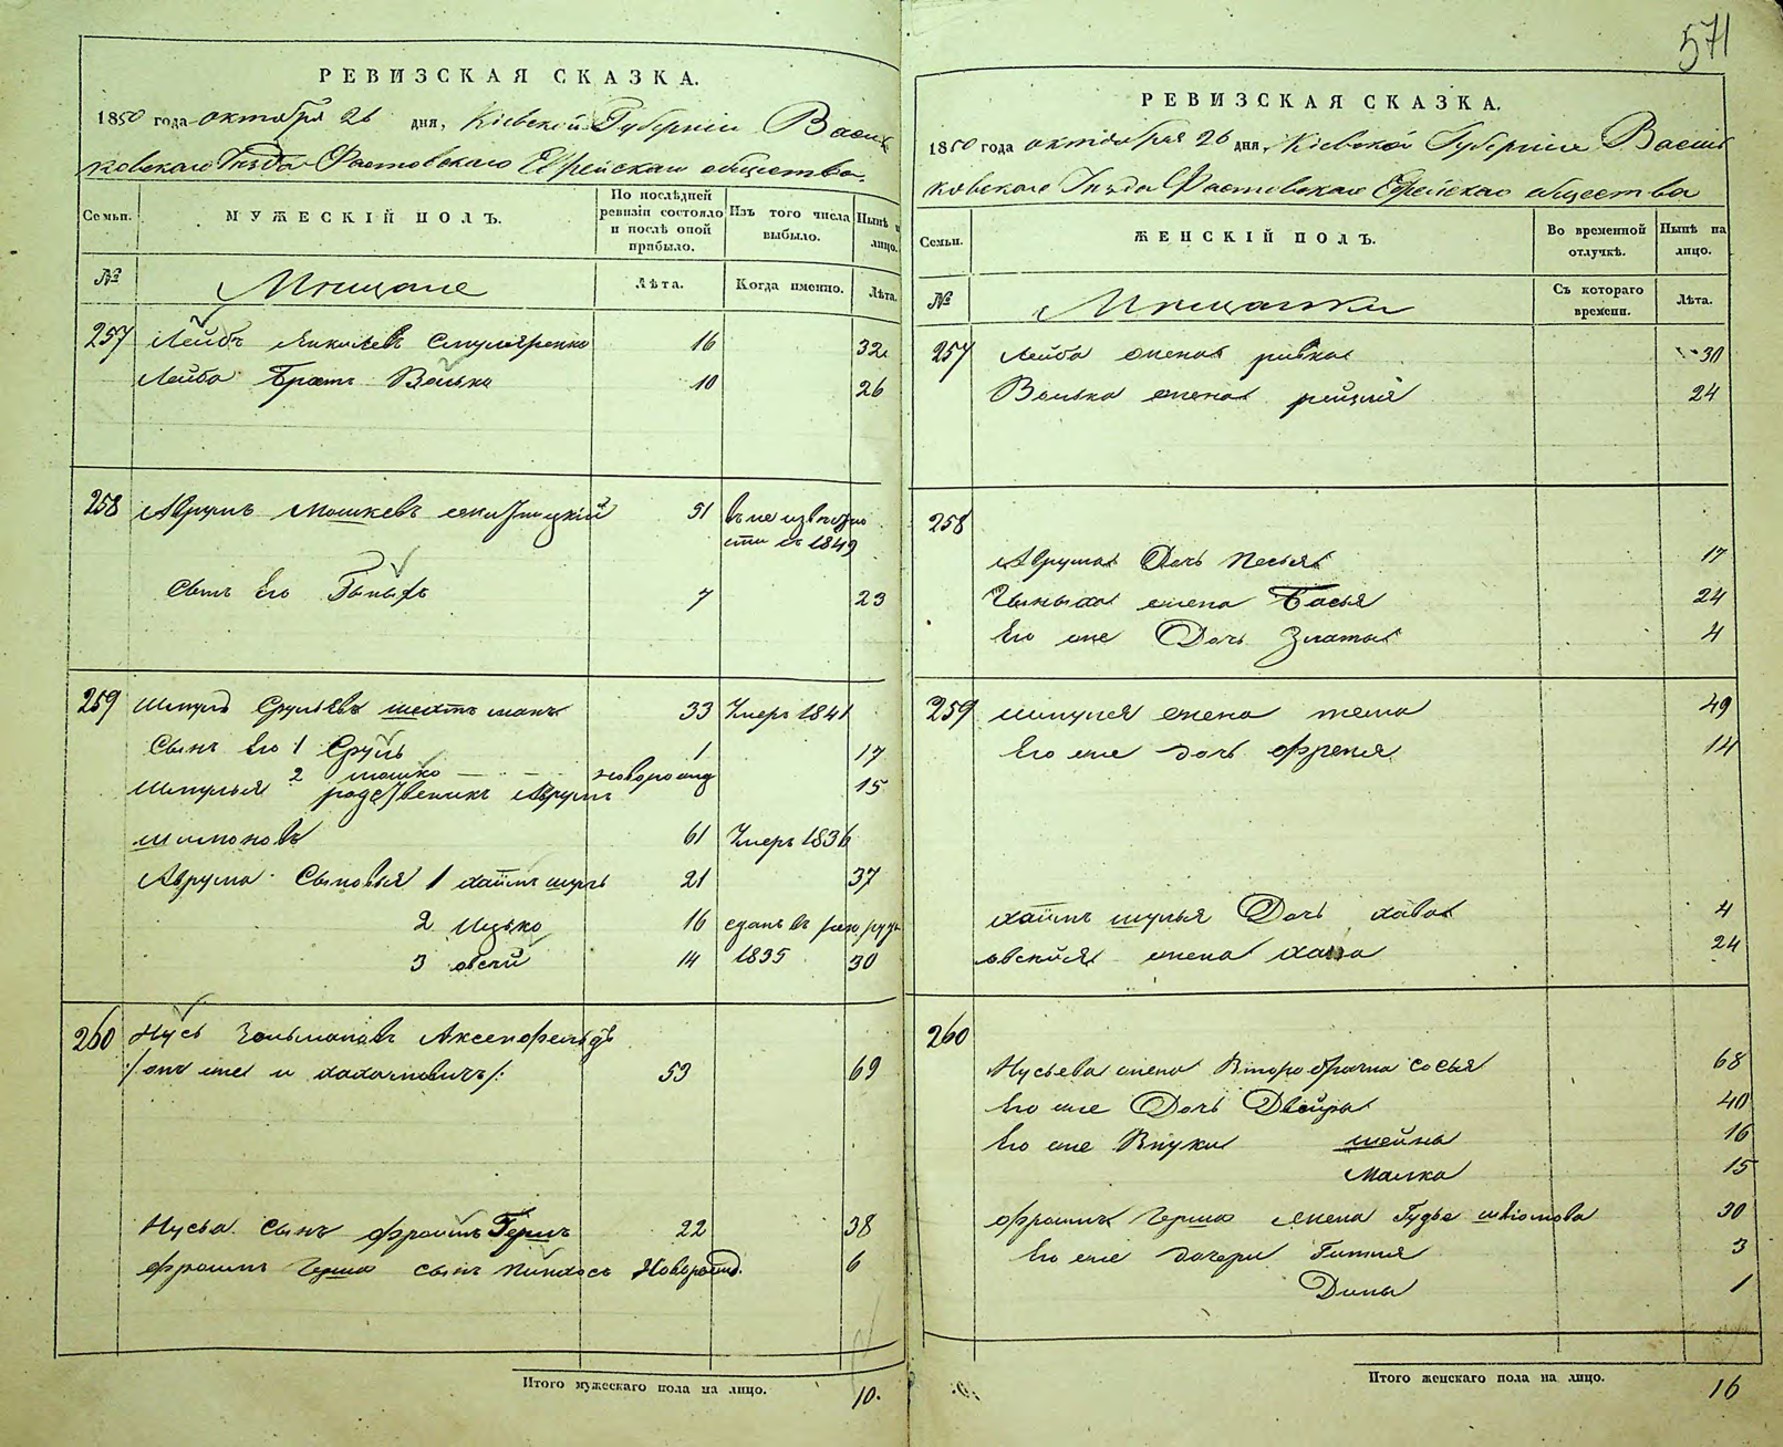 РЕВИЗСКАЯ СКАЗКА.
1850 года октября 26 дня, Кіевской Губерніи Васил
ковскаго Уѣзда Фастовскаго Еврейскаго общества.
Семьи.
МУЖЕСКІЙ ПОЛЪ.
По послѣдней ревизіи состояло и послѣ оной прибыло.
Изъ того числа выбыло.
Нынѣ на лицо.
№
Мѣщане
Лѣта.
Когда именно.
Лѣта.
257 Лейбъ Янкилевъ 16 32
Лейба Братъ Волько 10 26
258 Аврумъ Мошковъ 51 въ неизвѣстно
сти съ 1849
Сынъ Его 7 23
259 Шмуль Срульевъ 33 Умеръ 1841
Сынъ Его 1 Сруль 1 17
2 Мошко новорожд 15
Шмулья родственикъ Аврумъ
Шимоновъ 61 Умеръ 1836
Аврума Сыновья 1 Хаимъ Шуль 21 37
2 Ицько 16 сданъ въ рекруты
3 Овсей 14 1835 30
260 Нусь Зельмановъ Аксенфельдъ
/онъ же и / 53 69
Нуся Сынъ Фроимъ Гершъ 22 38
Фроимъ Герша сынъ Пинхосъ Новорожд. 6
Итого мужескаго пола на лицо. 10.
571
РЕВИЗСКАЯ СКАЗКА.
1850 года октября 26 дня, Кіевской Губерніи Василь
ковскаго Уѣзда Фастовскаго Еврейскаго общества
Семьи.
ЖЕНСКІЙ ПОЛЪ.
Во временной отлучкѣ.
Нынѣ на лицо.
№
Мѣщанки
Съ котораго времени.
Лѣта.
257 Лейба жена Ривка 30
Волька жена Рейзля 24
258
Аврума Дочь Песья 17
жена Бася 24
Его же Дочь Злата 4
259 Шмуля жена 49
Его же дочь Френя 14
Хаимъ Шулья Дочь Хава 4
Овсейя жена Хана 24
260
Нусьева жена Второбрачна Сосья 68
Его же Дочь Двойра 40
Его же Внуки Шейна 16
Малка 15
Фроимъ Герша жена 30
Его же дочери Гитля 3
Дина 1
Итого женскаго пола на лицо. 16